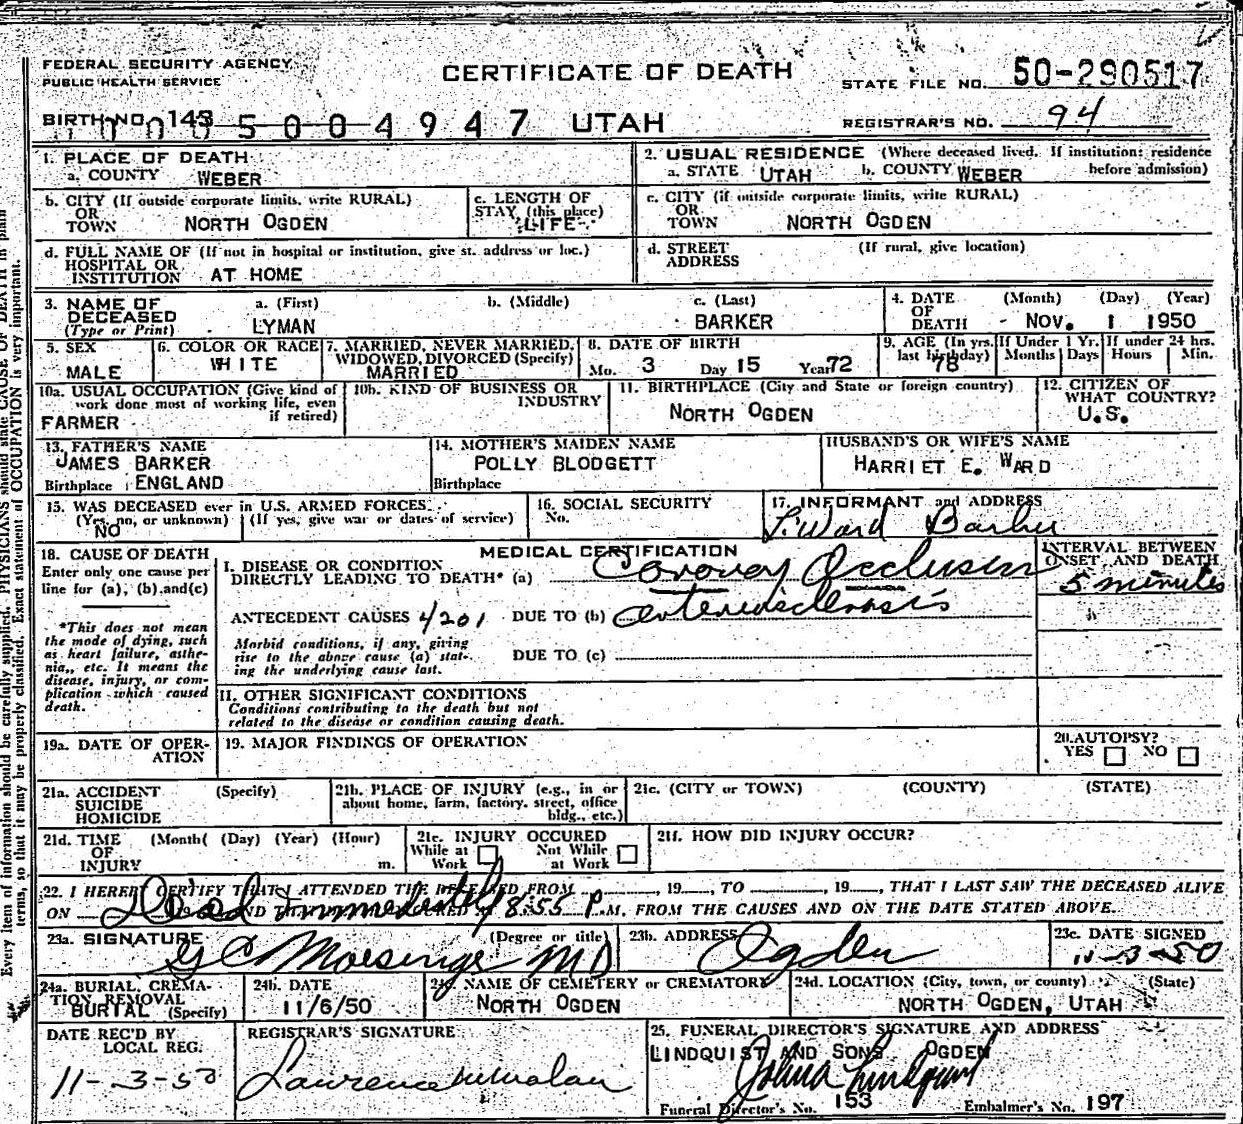 FEDERAL SECURITY AGENCY
PUBLIC HEALTH SERVICE
CERTIFICATE OF DEATH
STATE FILE NO. 50-290517
BIRTH NO. 143 5004947 UTAH
REGISTRAR'S NO. 94
1. PLACE OF DEATH
a. COUNTY WEBER
2. USUAL RESIDENCE (Where deceased lived. If institution: residence before admission)
a. STATE UTAH b. COUNTY WEBER
b. CITY (If outside corporate limits, write RURAL)
OR
TOWN NORTH OGDEN
c. LENGTH OF
STAY (this place)
LIFE
c. CITY (if outside corporate limits, write RURAL)
OR
TOWN NORTH OGDEN
d. FULL NAME OF (If not in hospital or institution, give st. address or loc.)
HOSPITAL OR
INSTITUTION AT HOME
d. STREET (If rural, give location)
ADDRESS
3. NAME OF DECEASED
(Type or Print)
a. (First) b. (Middle) c. (Last)
LYMAN BARKER
4. DATE OF DEATH (Month) (Day) (Year)
NOV. 1 1950
5. SEX
MALE
6. COLOR OR RACE
WHITE
7. MARRIED, NEVER MARRIED,
WIDOWED, DIVORCED (Specify)
MARRIED
8. DATE OF BIRTH
Mo. 3 Day 15 Year 72
9. AGE (In yrs. last birthday)
78
If Under 1 Yr.
Months Days
If under 24 hrs.
Hours Min.
10a. USUAL OCCUPATION (Give kind of
work done most of working life, even
if retired)
FARMER
10b. KIND OF BUSINESS OR
INDUSTRY
11. BIRTHPLACE (City and State or foreign country)
NORTH OGDEN
12. CITIZEN OF
WHAT COUNTRY?
U.S.
13. FATHER'S NAME
JAMES BARKER
Birthplace ENGLAND
14. MOTHER'S MAIDEN NAME
POLLY BLODGETT
Birthplace
HUSBAND'S OR WIFE'S NAME
HARRIET E. WARD
15. WAS DECEASED ever in U.S. ARMED FORCES
(Yes, no, or unknown) (If yes, give war or dates of service)
NO
16. SOCIAL SECURITY
No.
17. INFORMANT and ADDRESS
L. Ward Barker
18. CAUSE OF DEATH
Enter only one cause per
line for (a), (b), and (c)
*This does not mean
the mode of dying, such
as heart failure, asthe-
nia,, etc. It means the
disease, injury, or com-
plication which caused
death.
MEDICAL CERTIFICATION
I. DISEASE OR CONDITION
DIRECTLY LEADING TO DEATH* (a) Coronary Occlusion
INTERVAL BETWEEN
ONSET AND DEATH
5 minutes
ANTECEDENT CAUSES 4201 DUE TO (b) arteriosclerosis
Morbid conditions, if any, giving
rise to the above cause (a) stat-
ing the underlying cause last.
DUE TO (c)
II. OTHER SIGNIFICANT CONDITIONS
Conditions contributing to the death but not
related to the disease or condition causing death.
19a. DATE OF OPER-
ATION
19. MAJOR FINDINGS OF OPERATION
20. AUTOPSY?
YES NO
21a. ACCIDENT (Specify)
SUICIDE
HOMICIDE
21b. PLACE OF INJURY (e.g., in or
about home, farm, factory, street, office
bldg., etc.)
21c. (CITY or TOWN) (COUNTY) (STATE)
21d. TIME (Month( (Day) (Year) (Hour)
OF
INJURY m.
21e. INJURY OCCURED
While at Work Not While at Work
21f. HOW DID INJURY OCCUR?
22. I HEREBY CERTIFY THAT I ATTENDED THE DECEASED FROM , 19 , TO , 19 , THAT I LAST SAW THE DECEASED ALIVE
ON Dead Immediately 8:55 P.M. FROM THE CAUSES AND ON THE DATE STATED ABOVE.
23a. SIGNATURE (Degree or title)
MD
23b. ADDRESS
Ogden
23c. DATE SIGNED
11-3-50
24a. BURIAL, CREMA-
TION, REMOVAL
BURIAL (Specify)
24b. DATE
11/6/50
NAME OF CEMETERY or CREMATORY
NORTH OGDEN
24d. LOCATION (City, town, or county) (State)
NORTH OGDEN, UTAH
DATE REC'D BY
LOCAL REG.
11-3-50
REGISTRAR'S SIGNATURE
Lawrence
25. FUNERAL DIRECTOR'S SIGNATURE AND ADDRESS
LINDQUIST AND SONS OGDEN
John Lindquist
Funeral Director's No. 153 Embalmer's No. 197
Every item of information should be carefully supplied. PHYSICIANS should state CAUSE OF DEATH in plain
terms, so that it may be properly classified. Exact statement of OCCUPATION is very important.